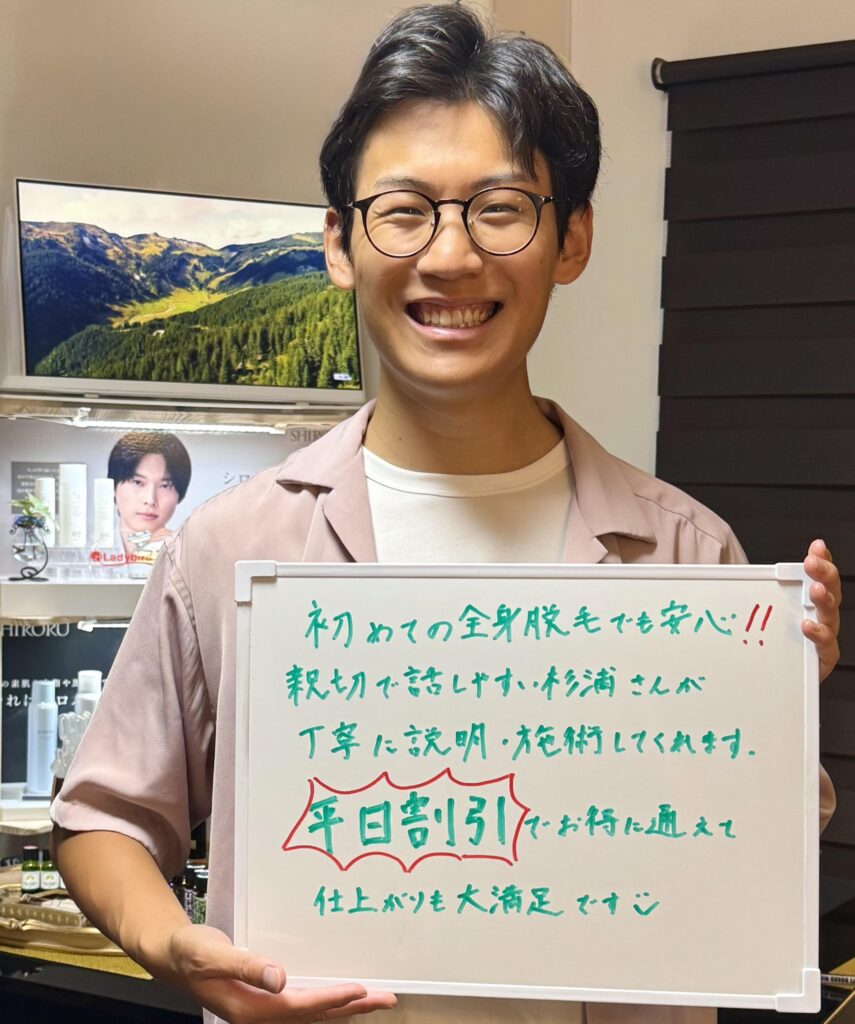 初めての全身脱毛でも安心!!
親切で話しやすい杉浦さんが
丁寧に説明・施術してくれます.
平日割引でお得に通えて
仕上がりも大満足です
Ladybird
SHIRORU